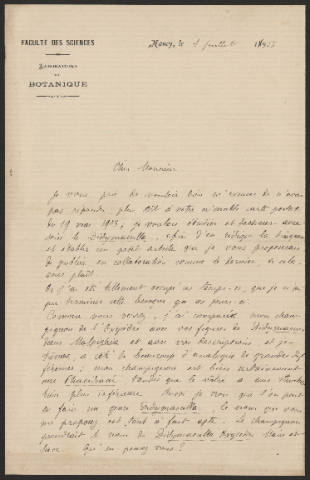 FACULTÉ DES SCIENCES
LABORATOIRE
DE
BOTANIQUE
Nancy, le 8 juillet
Cher Monsieur
Je vous prie de vouloir bien m'excuser de n'avoir
pas répondu plus tôt à votre aimable carte postale
du 19 mai 1913, je voulais étudier et dessiner avec
soin le Didymascella, afin d'en rédiger la diagnose
et établir un petit article que je vous proposerai
de publier en collaboration comme le dernier, si cela
vous plaît.
Or j'ai été tellement occupé ces temps-ci, que je n'ai
pas terminer cette besogne
Comme vous voyez, j'ai comparé mon cham-
pignon de l'Oxycèdre avec vos figures de
dans Malpighia et avec vos descriptions et je
trouve, à côté de beaucoup d'analogies de grandes dif-
férences; mon champignon est bien certainement
une tandis que le vôtre a une
bien plus inférieure. Aussi je crois que l'on peut
en faire un genre Didymascella, le nom que vous
me proposez est tout à fait apte. Le champignon
prendrait le nom de Didymascella Oxycedri
Qu'en pensez vous?